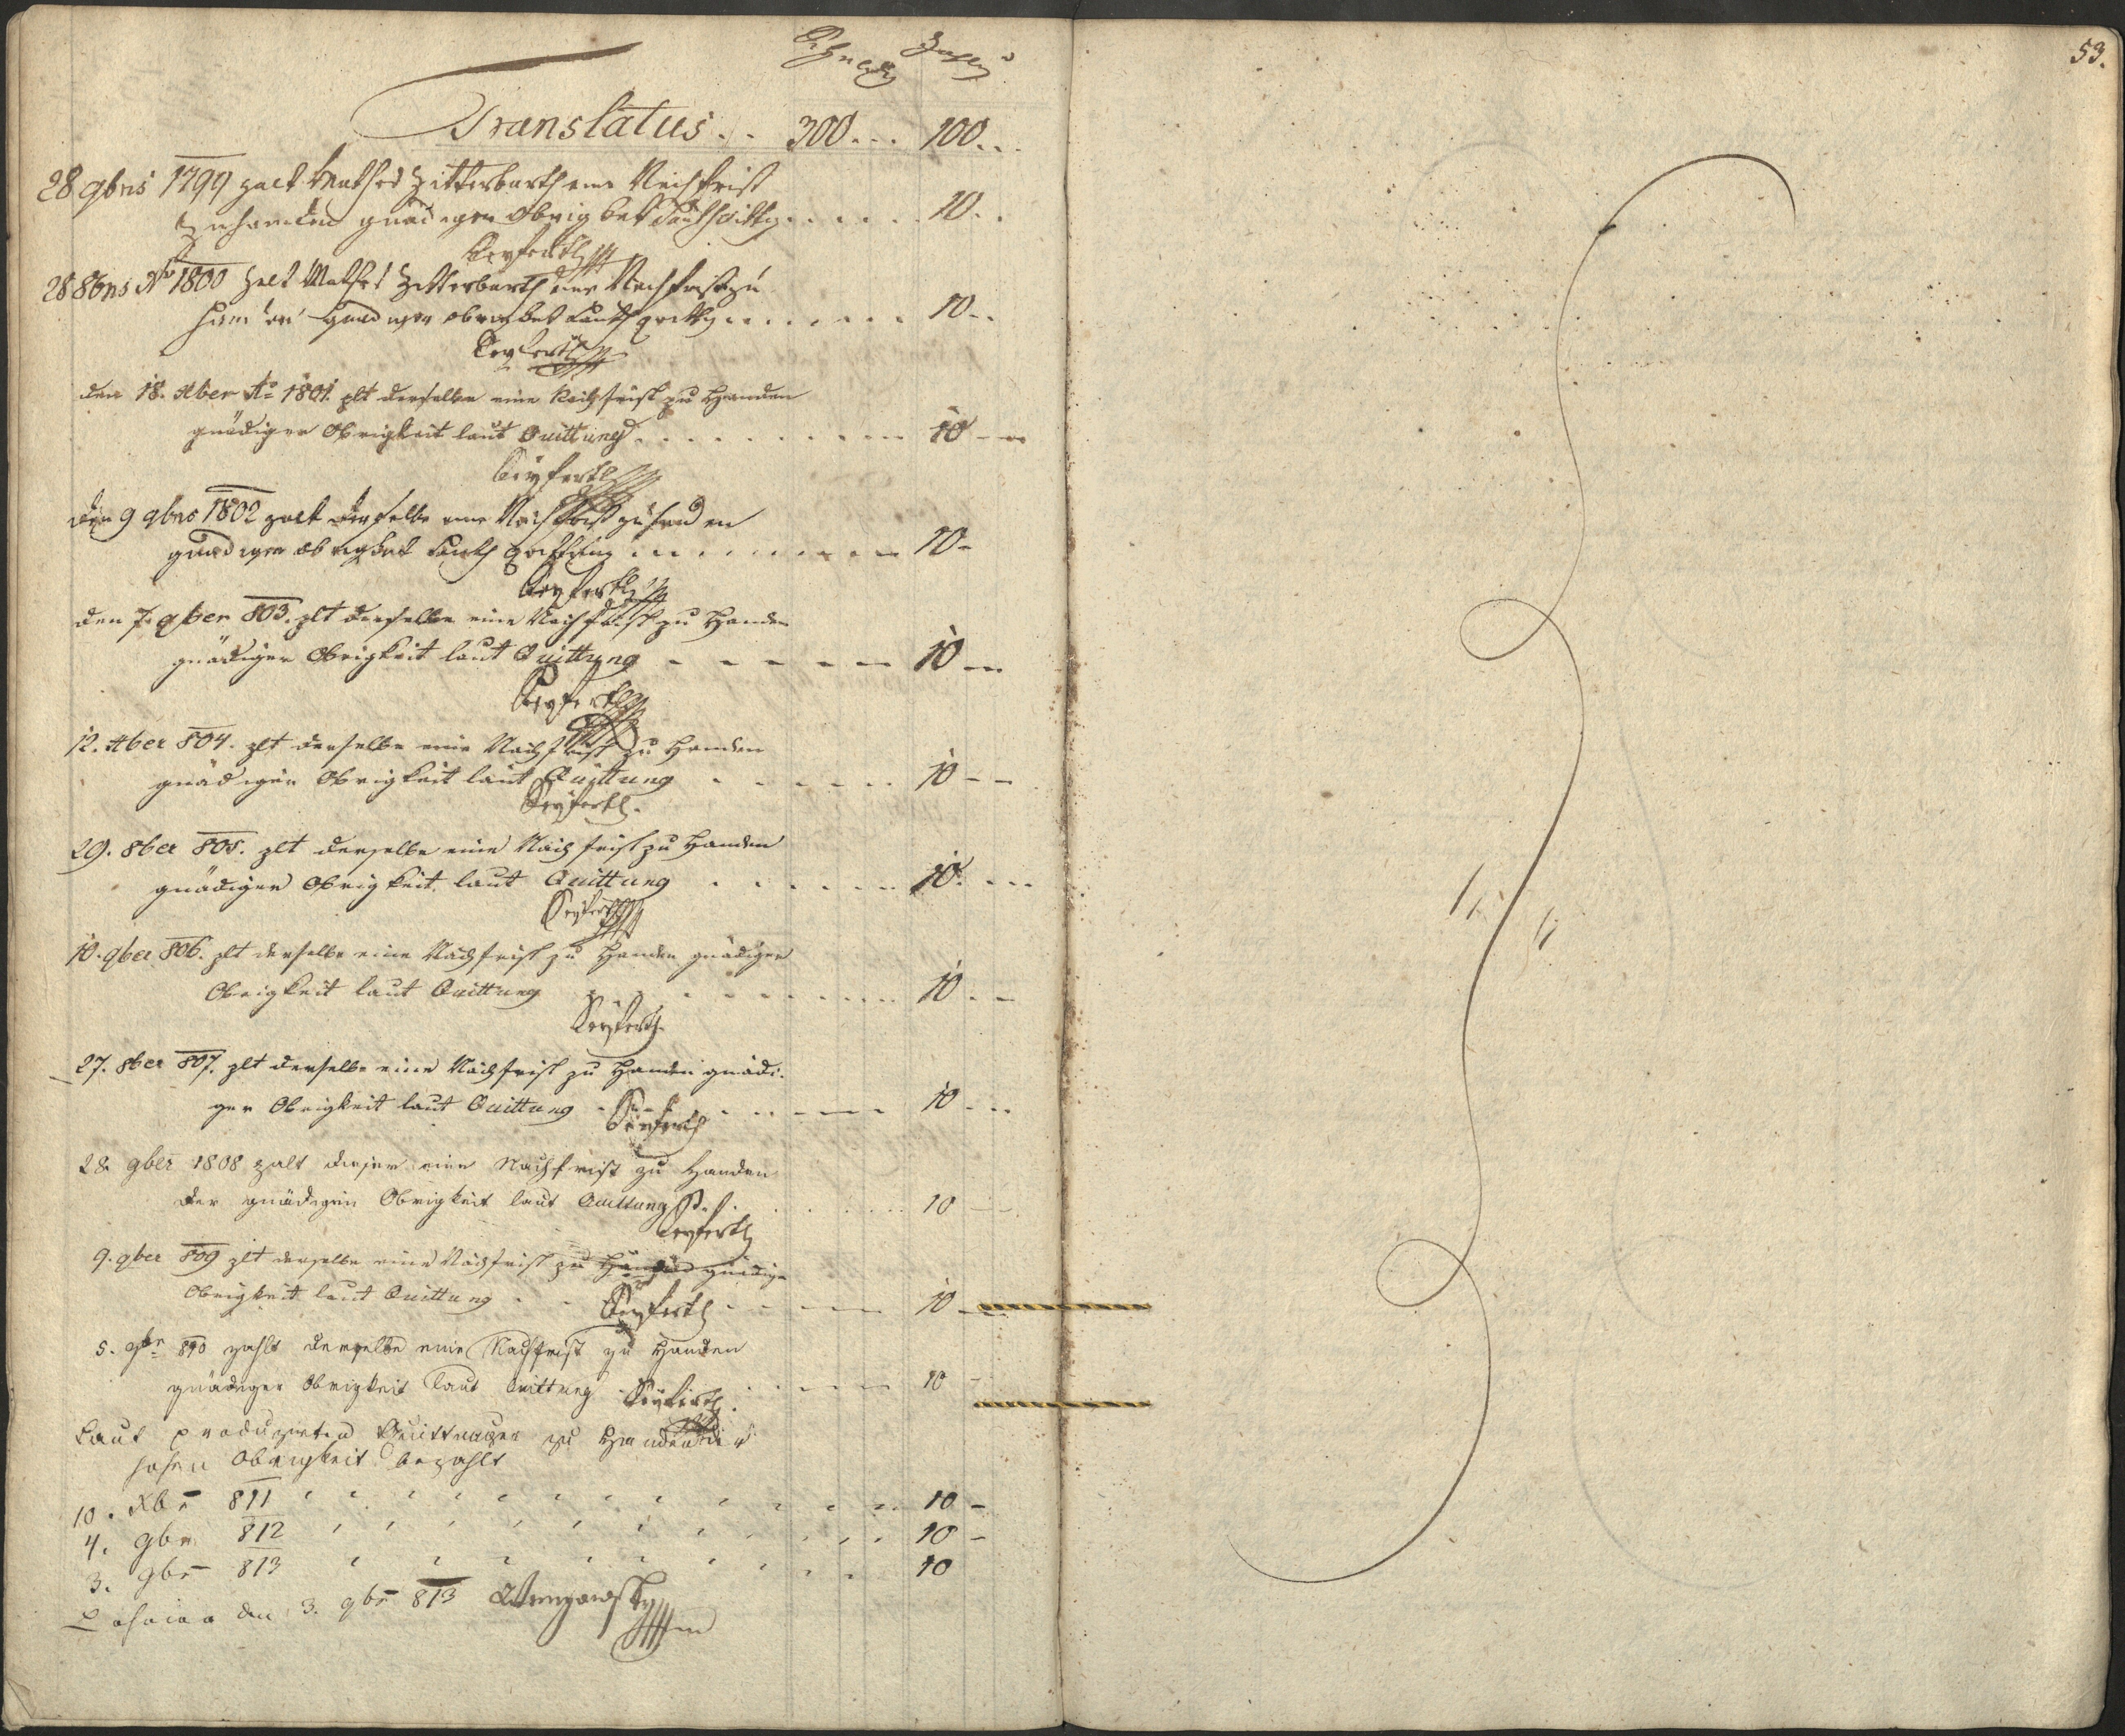 Schuldig Zahlt
Translatus . . 300 . . . 100 . . .
28 9bris 1799 zalt Mathes Zitterbarth eine Nachfrist
zu handen gnädigen obrigket Lauth quittg . . . . . . 10 . .
Seyferth
28 8bris Ao 1800 zalt Mathes Zitterbarth eine Nachfrist zu
handen gnädigen obrigket Lauth quittg . . . . . . . 10 . .
Seyferth
den 18. Xber Ao 1801. zlt derselbe eine Nachfrist zu Handen
gnädiger Obrigkeit laut Quittung . . . . . . . . . 10 - -
Seyferth
den 9 9bris 1802 zalt derselbe eine Nachfrist zu handen
gnädigen obrigket Lauth quittung . . . . . . . . . 10 -
Seyferth
den 7. 9ber 803. zlt derselbe eine Nachfrist zu Handen
gnädiger Obrigkeit laut Quittung - - - - - - 10 -
Seyferth
12. Xber 804. zlt derselbe eine Nachfrist zu Handen
gnädiger Obrigkeit laut Quittung . . . . . . 10 - -
Seyferth.
29. 8ber 805. zlt derselbe eine Nachfrist zu Handen
gnädiger Obrigkeit laut Quittung . . . . . . 10. . . .
Seyferth
10. 9ber 806. zlt derselbe eine Nachfrist zu Handen gnädiger
Obrigkeit laut Quittung . . . . . . . . . . 10 . -
Seyferth
27. 8ber 807. zlt derselbe eine Nachfrist zu Handen gnädi-
ger Obrigkeit laut Quittung - - - - - - - - 10 . . .
Seyferth
28. 9ber 1808 zalt dieser eine Nachfrist zu Handen
der gnädigen Obrigkeit laut Quittung . . . . . . 10 - -
Seyferth
9. 9ber 809 zlt derselbe eine Nachfrist zu Handen gnädiger
Obrigkeit laut Quittung . . Seyferth . - - - - 10 -
5. 9br 810 zahlt derselbe eine Nachfrist zu Handen
gnädiger Obrigkeit laut Quittung . Seyferth . - - - - 10 -
Laut produzirten Quittungen zu Handen der
hohen Obrigkeit bezahlt
10. Xbr 811 . . . . . . . . . . . . . 10 -
4. 9br 812 . . . . . . . . . . . . 10 -
3. 9br 813 . . . . . . . . . . . 10
den 3. 9br 813
53.